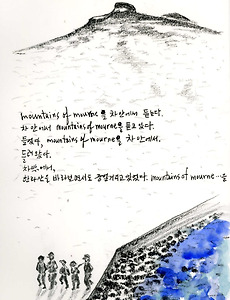 mountains of mourne을 차 안에서 듣는다.
차 안에서 mountains of mourne을 듣고 있다.
들었다, mountains of mourne을 차 안에서.
차 에서,
한라산을 바라보면서도 흥얼거리고 있었다. mountains of mourne...을